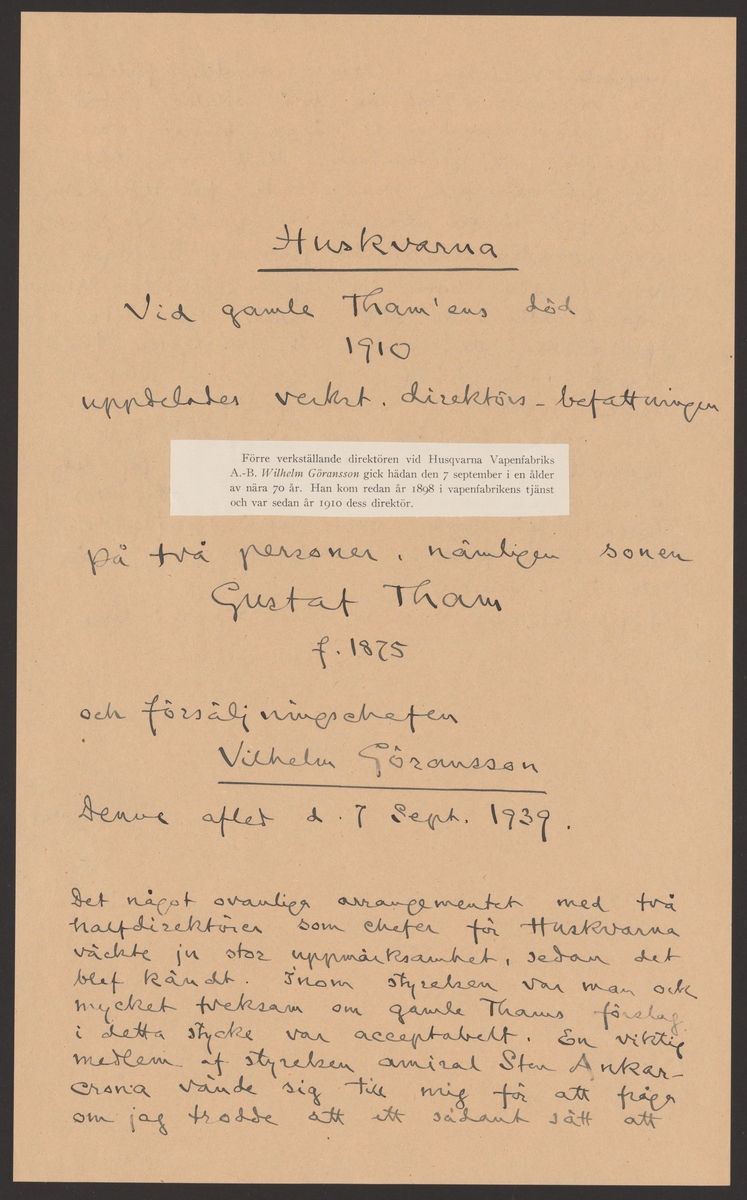 Huskvarna
Vid gamle Tham'ens död
1910
uppdelades verkst. direktörs-befattningen
Förre verkställande direktören vid Husqvarna Vapenfabriks
A.-B. Wilhelm Göransson gick hädan den 7 september i en ålder
av nära 70 år. Han kom redan år 1898 i vapenfabrikens tjänst
och var sedan år 1910 dess direktör.
på två personer, nämligen sonen
Gustaf Tham
f. 1875
och försäljningschefen
Vilhelm Göransson
Denne afled d. 7 Sept. 1939.
Det något ovanliga arrangementet med två
halfdirektörer som chefer för Huskvarna
väckte ju stor uppmärksamhet, sedan det
blef kändt. Inom styrelsen var man ock
mycket tveksam om gamle Thams förslag
i detta stycke var acceptabelt. En viktig
medlem af styrelsen amiral Sten Ankar-
crona vände sig till mig för att fråga
om jag trodde att ett sådant sätt att